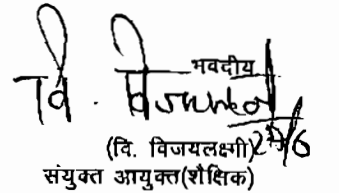 भवदीय
वि.
27/6
(वि. विजयलक्ष्मी)
संयुक्त आयुक्त(शैक्षिक)